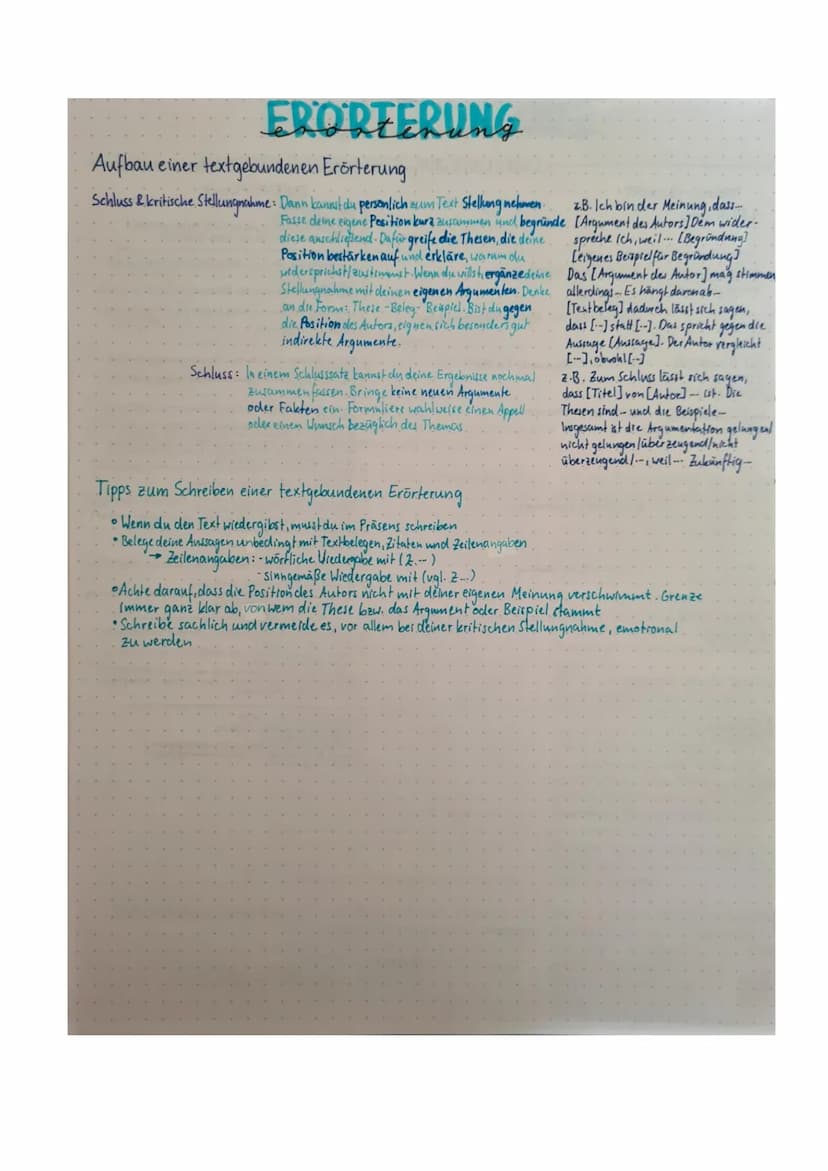 ERÖRTERUNG
erörterung
Aufbau einer textgebundenen Erörterung
Schluss & kritische Stellungnahme: Dann kannst du persönlich zum Text Stellung nehmen.
Fasse deine eigene Position kurz zusammen und begründe
diese anschließend. Dafür greife die Thesen, die deine
Position bestärken auf und erkläre, warum du
widersprichst/zustimmst. Wenn du willst, ergänze deine
Stellungnahme mit deinen eigenen Argumenten. Denke
an die Form: These - Beleg - Beispiel. Bist du gegen
die Position des Autors, eignen sich besonders gut
indirekte Argumente.
z.B. Ich bin der Meinung, dass...
[Argument des Autors] Dem wider-
spreche ich, weil ... [Begründung]
[eigenes Beispiel für Begründung]
Das [Argument des Autor] mag stimmen
allerdings... Es hängt davon ab...
[Textbeleg] dadurch lässt sich sagen,
dass [...] statt [...]. Das spricht gegen die
Aussage [Aussage]. Der Autor vergleicht
[...], obwohl [...]
Schluss: In einem Schlusssatz kannst du deine Ergebnisse nochmal
zusammenfassen. Bringe keine neuen Argumente
oder Fakten ein. Formuliere wahlweise einen Appell
oder einen Wunsch bezüglich des Themas.
z.B. Zum Schluss lässt sich sagen,
dass [Titel] von [Autor] ... ist. Die
Thesen sind ... und die Beispiele ...
Insgesamt ist die Argumentation gelungen/
nicht gelungen/überzeugend/nicht
überzeugend/..., weil ... Zukünftig ...
Tipps zum Schreiben einer textgebundenen Erörterung
• Wenn du den Text wiedergibst, musst du im Präsens schreiben
• Belege deine Aussagen unbedingt mit Textbelegen, Zitaten und Zeilenangaben
→ Zeilenangaben: - wörtliche Wiedergabe mit (Z. ...)
- sinngemäße Wiedergabe mit (vgl. Z...)
• Achte darauf, dass die Position des Autors nicht mit deiner eigenen Meinung verschwimmt. Grenze
immer ganz klar ab, von wem die These bzw. das Argument oder Beispiel stammt
• Schreibe sachlich und vermeide es, vor allem bei deiner kritischen Stellungnahme, emotional
zu werden